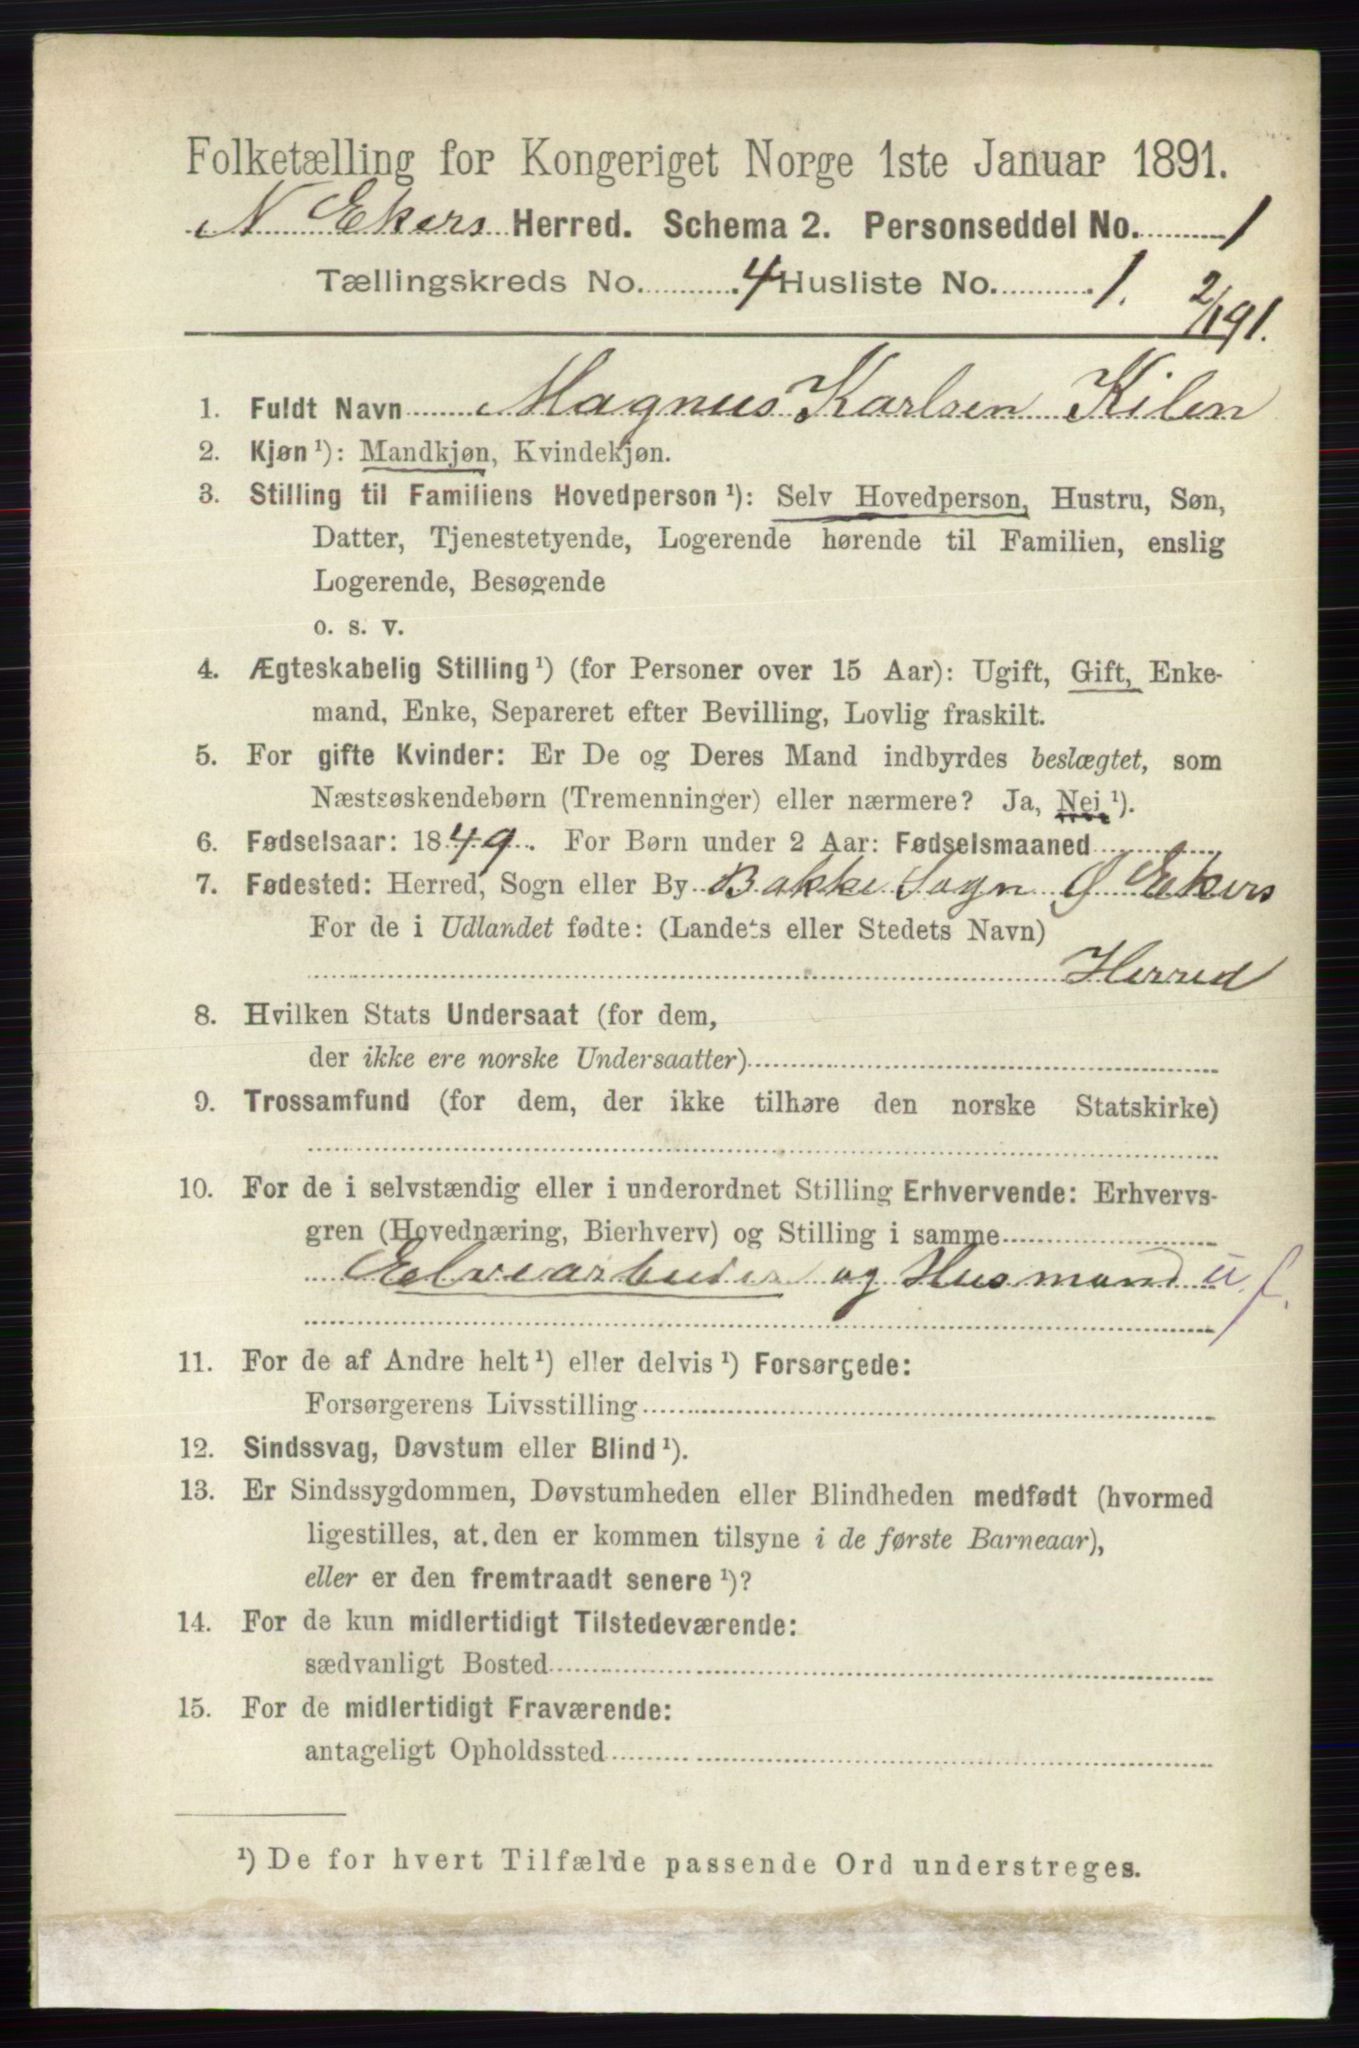 Folketælling for Kongeriget Norge 1ste Januar 1891.
N Ekers Herred. Schema 2. Personseddel No. 1
Tællingskreds No. 4 Husliste No. 1.
2/1 91.
1. Fuldt Navn Magnus Karlsen Kilen
2. Kjøn¹): Mandkjøn, Kvindekjøn.
3. Stilling til Familiens Hovedperson¹): Selv Hovedperson, Hustru, Søn,
Datter, Tjenestetyende, Logerende hørende til Familien, enslig
Logerende, Besøgende
o. s. v.
4. Ægteskabelig Stilling¹) (for Personer over 15 Aar): Ugift, Gift, Enke-
mand, Enke, Separeret efter Bevilling, Lovlig fraskilt.
5. For gifte Kvinder: Er De og Deres Mand indbyrdes beslægtet, som
Næstsøskendebørn (Tremenninger) eller nærmere? Ja, Nei¹).
6. Fødselsaar: 1849. For Børn under 2 Aar: Fødselsmaaned
7. Fødested: Herred, Sogn eller By Bakke Sogn Ø Ekers
For de i Udlandet fødte: (Landets eller Stedets Navn)
Herred
8. Hvilken Stats Undersaat (for dem,
der ikke ere norske Undersaatter)
9. Trossamfund (for dem, der ikke tilhøre den norske Statskirke)
10. For de i selvstændig eller i underordnet Stilling Erhvervende: Erhvervs-
gren (Hovednæring, Bierhverv) og Stilling i samme
Elvearbeider og Husmand u. f.
11. For de af Andre helt¹) eller delvis¹) Forsørgede:
Forsørgerens Livsstilling
12. Sindssvag, Døvstum eller Blind¹).
13. Er Sindssygdommen, Døvstumheden eller Blindheden medfødt (hvormed
ligestilles, at den er kommen tilsyne i de første Barneaar),
eller er den fremtraadt senere¹)?
14. For de kun midlertidigt Tilstedeværende:
sædvanligt Bosted
15. For de midlertidigt Fraværende:
antageligt Opholdssted
¹) De for hvert Tilfælde passende Ord understreges.